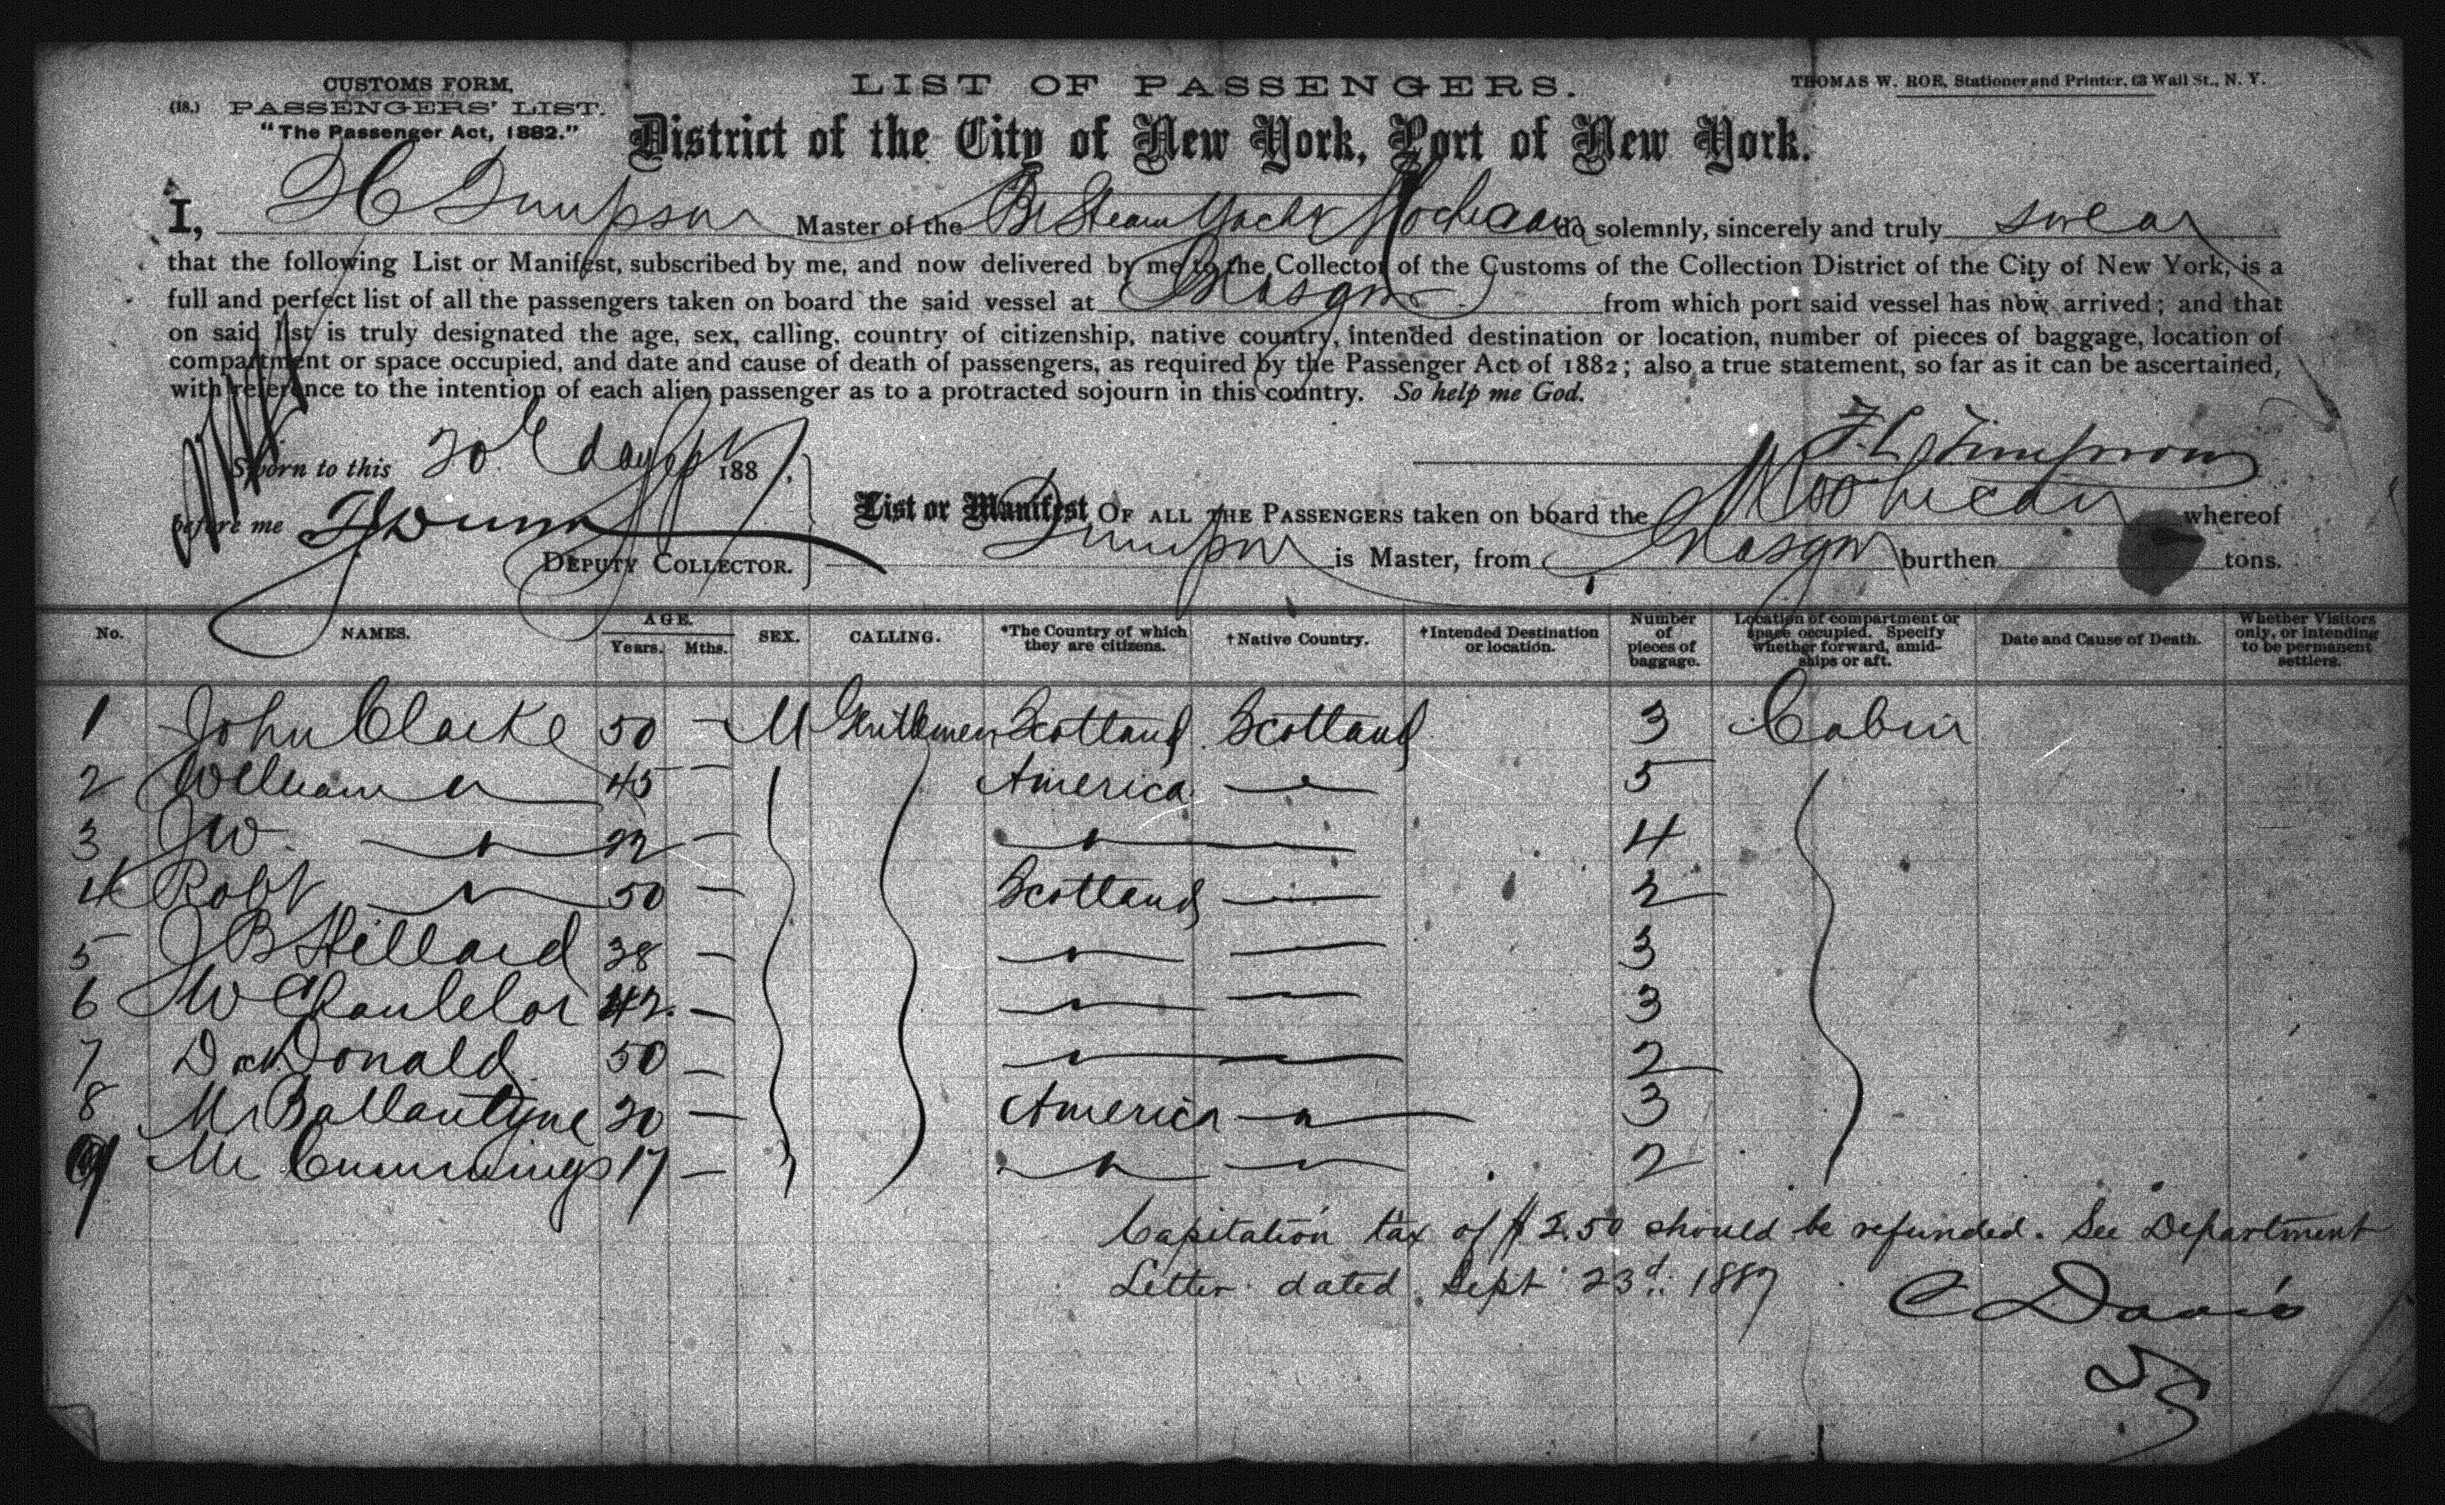 CUSTOMS FORM,
(18.) PASSENGERS' LIST.
"The Passenger Act, 1882."
LIST OF PASSENGERS.
THOMAS W. ROE, Stationer and Printer, 63 Wall St., N. Y.
District of the City of New York, Port of New York.
I, Simpson Master of the Br Steam Yacht Mohican do solemnly, sincerely and truly swear
that the following List or Manifest, subscribed by me, and now delivered by me to the Collector of the Customs of the Collection District of the City of New York, is a
full and perfect list of all the passengers taken on board the said vessel at Glasgow from which port said vessel has now arrived; and that
on said list is truly designated the age, sex, calling, country of citizenship, native country, intended destination or location, number of pieces of baggage, location of
compartment or space occupied, and date and cause of death of passengers, as required by the Passenger Act of 1882; also a true statement, so far as it can be ascertained,
with reference to the intention of each alien passenger as to a protracted sojourn in this country. So help me God.
Sworn to this 20th day Sept 1887.
Simpson
before me
DEPUTY COLLECTOR.
List or Manifest OF ALL THE PASSENGERS taken on board the Mohican whereof
Simpson is Master, from Glasgow burthen tons.
No. NAMES. AGE. Years. Mths. SEX. CALLING. *The Country of which they are citizens. †Native Country. †Intended Destination or location. Number of pieces of baggage. Location of compartment or space occupied. Specify whether forward, amidships or aft. Date and Cause of Death. Whether Visitors only, or intending to be permanent settlers.
1 John Clarke 50 — M Gentlemen Scotland Scotland 3 Cabin
2 William " 45 — America — 5
3 JW " 22 — " — 4
4 Robt " 50 — Scotland — 2
5 J B Hillard 38 — " — 3
6 W Chancelor 42 — " — 3
7 Donald 50 — " — 2
8 Mr Ballantyne 20 — America " 3
9 Mr Cummings 17 — " " 2
Capitation tax of $2.50 should be refunded. See Department
Letter dated Sept 23d. 1887
C Davis